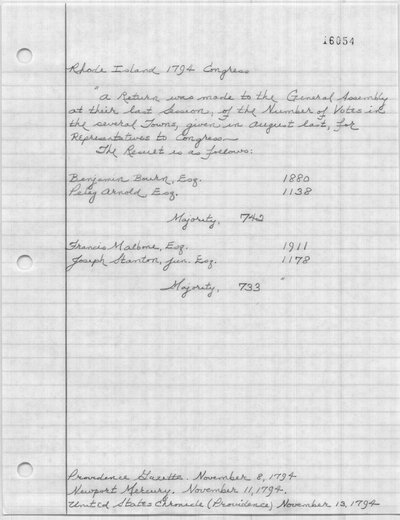 16054
Rhode Island 1794 Congress
"A Return was made to the General Assembly
at their last Session, of the Number of Votes in
the several Towns, given in August last, for
Representatives to Congress
The Result is as follows:
Benjamin Bourn, Esq. 1880
Peleg Arnold Esq. 1138
Majority, 742
Francis Malbone, Esq. 1911
Joseph Stanton, jun. Esq. 1178
Majority, 733 "
Providence Gazette. November 8, 1794
Newport Mercury. November 11, 1794.
United States Chronicle (Providence) November 13, 1794